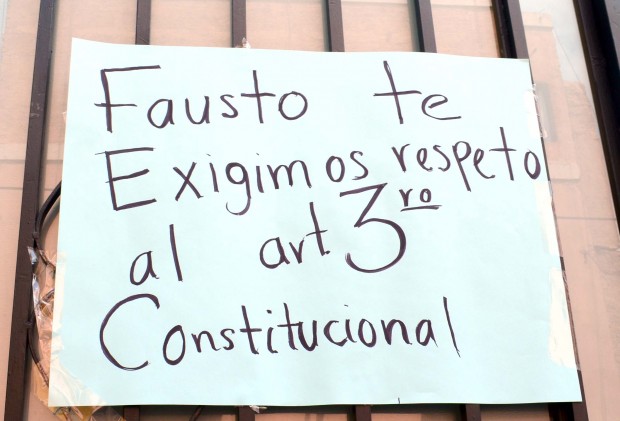 Fausto te
Exigimos respeto
al art 3ro
Constitucional